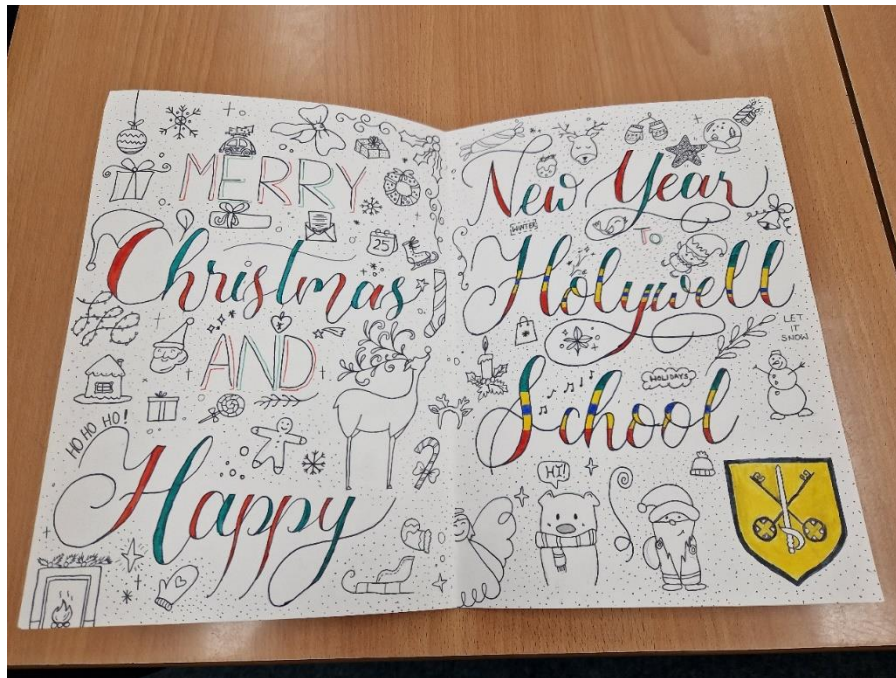 MERRY
25
Christmas
AND
HO HO HO!
Happy
New Year
WINTER
TO
Holywell
LET
IT
SNOW
HOLIDAYS
School
HI!